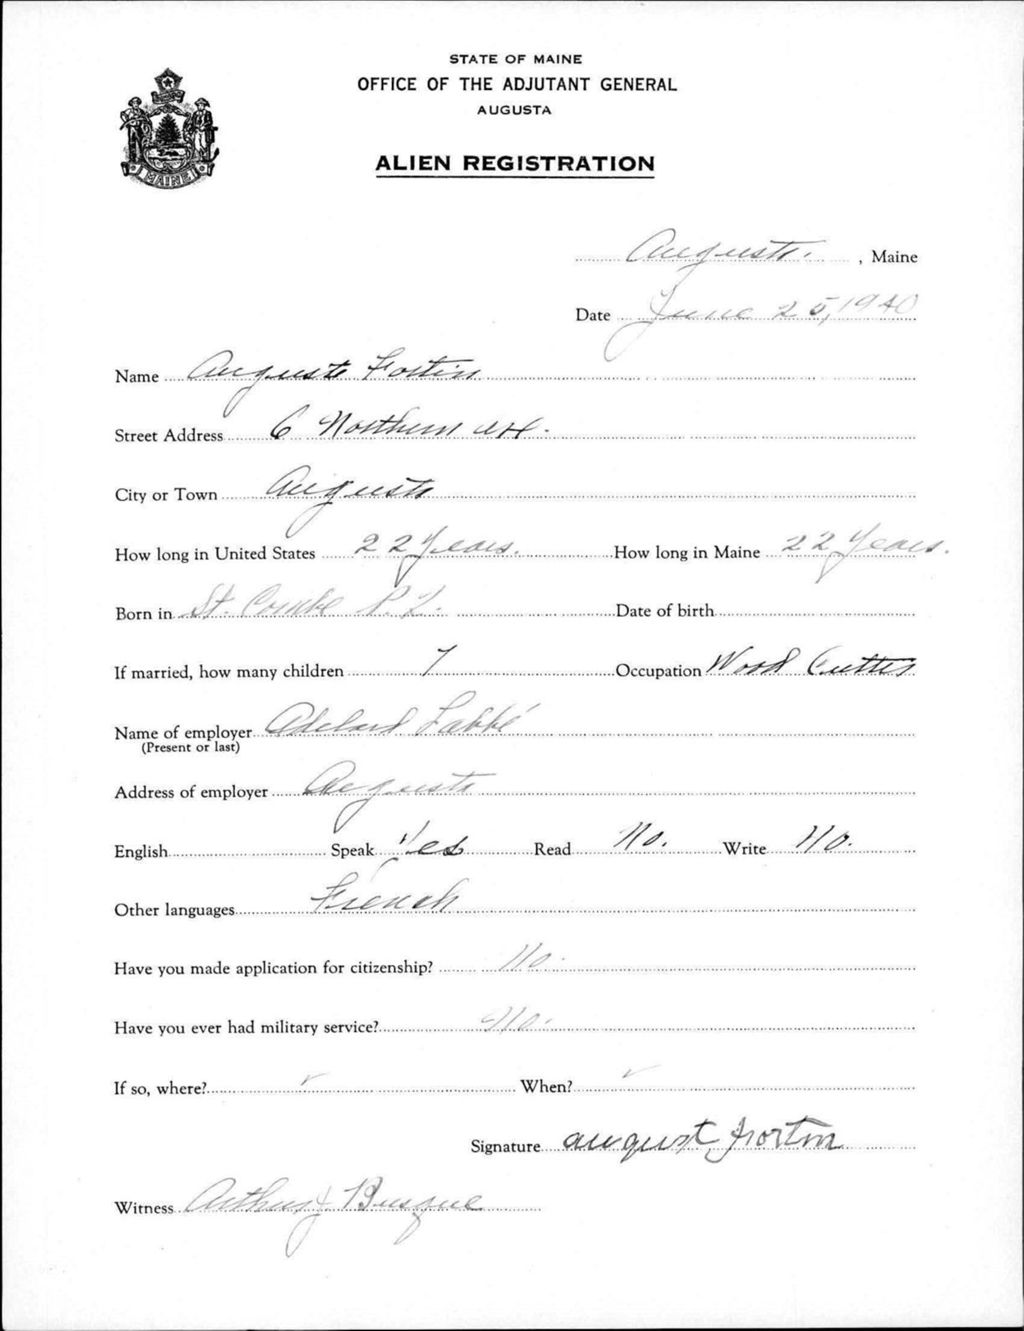 STATE OF MAINE
OFFICE OF THE ADJUTANT GENERAL
AUGUSTA
ALIEN REGISTRATION
MAINE
Augusta, Maine
Date June 25, 1940
Name Auguste Fortin
Street Address 6 Northern
City or Town Augusta
How long in United States 22 Years. How long in Maine 22 Years.
Born in St. P.Q. Date of birth
If married, how many children 7 Occupation Wood Cutter
Name of employer Adelard Labbé
(Present or last)
Address of employer Augusta
English Speak Yes Read No. Write No.
Other languages French
Have you made application for citizenship? No.
Have you ever had military service? No.
If so, where? ✓ When? ✓
Signature august fortin
Witness Arthur J. Busque